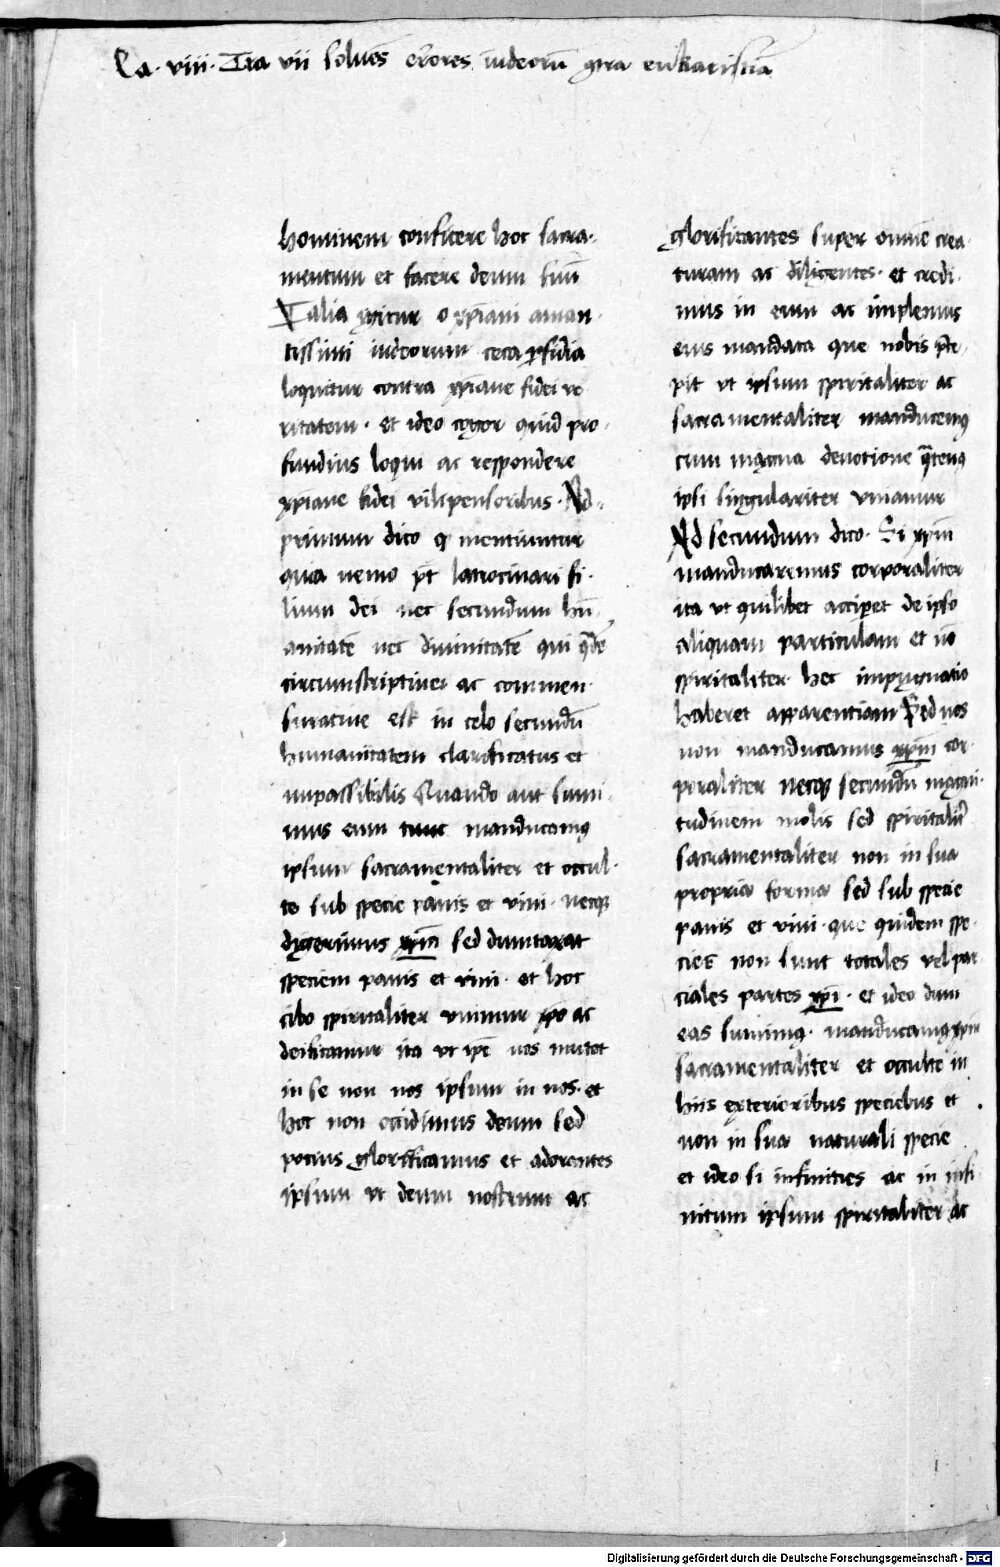 Ca. viii. Tra vii soluēs erŏres iudeorū ꝯtra eukaristiā
hominem conficere hoc sacra-
mentum et facere deum suū
Talia ygitur o xp̄iani aman-
tissimi iudeorum ceca ꝑfidia
loquitur contra xp̄iane fidei ve
ritatem. et ideo cogor quid pro-
fundius loqui ac respondere
xp̄iane fidei vilipensoribus. Ad
primum dico ꝙ mentiuntur
quia nemo p̄t latrocinari fi-
lium dei nec secundum hu-
anitatē nec diuinitatē qui
circumscriptiue ac commen-
suratiue est in celo secundū
humanitatem clarificatus et
impassibilis Quando aut sumi-
mus eum tunc manducamꝰ
ipsum sacramentaliter et occul-
te sub specie panis et vini. neqꝫ
digerimus xp̄m sed dumtaxat
speciem panis et vini. et hoc
cibo spiritaliter vnimur xp̄o ac
deificamur ita vt ip̄e nos mutet
in se non nos ipsum in nos. et
hoc non occidimus deum sed
pocius glorificamus et adorantes
ipsum vt deum nostrum ac
glorificantes super omnē crea-
turam ac diligentes. et credi-
mus in eum ac implemus
eius mandata que nobis p̄ce-
pit vt ipsum spiritaliter ac
sacramentaliter manducemꝰ
cum magna deuotione q̄tenꝰ
ipsi singulariter vniamur
Ad secundum dico. Si xp̄m
manducaremus corporaliter
ita vt quilibet acciperet de ipso
aliquam particulam et nō
spiritaliter. hec impugnatio
haberet apparentiam Sed nos
non manducamus xp̄m cor-
poraliter neqꝫ secundū magni-
tudinem molis sed spiritalit̄
sacramentaliter non in sua
propria forma sed sub specie
panis et vini. que quidem spe-
cies non sunt totales vel par
ciales partes xp̄i. et ideo dum
eas sumimꝰ. manducamꝰ xp̄m
sacramentaliter et occulte in
hiis exterioribus speciebus et
non in sua naturali specie
et ideo si infinities ac in infi-
nitum ipsum spiritaliter ac
Digitalisierung gefördert durch die Deutsche Forschungsgemeinschaft - DFG